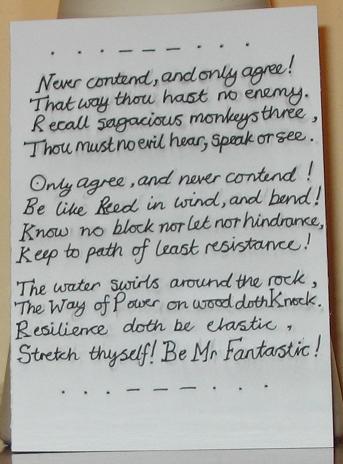 . . . — — — . . .
Never contend, and only agree!
That way thou hast no enemy.
Recall sagacious monkeys three,
Thou must no evil hear, speak or see.
Only agree, and never contend!
Be like Reed in wind, and bend!
Know no block nor let nor hindrance,
Keep to path of least resistance!
The water swirls around the rock,
The Way of Power on wood doth Knock.
Resilience doth be elastic,
Stretch thyself! Be Mr Fantastic!
. . . — — — . . .